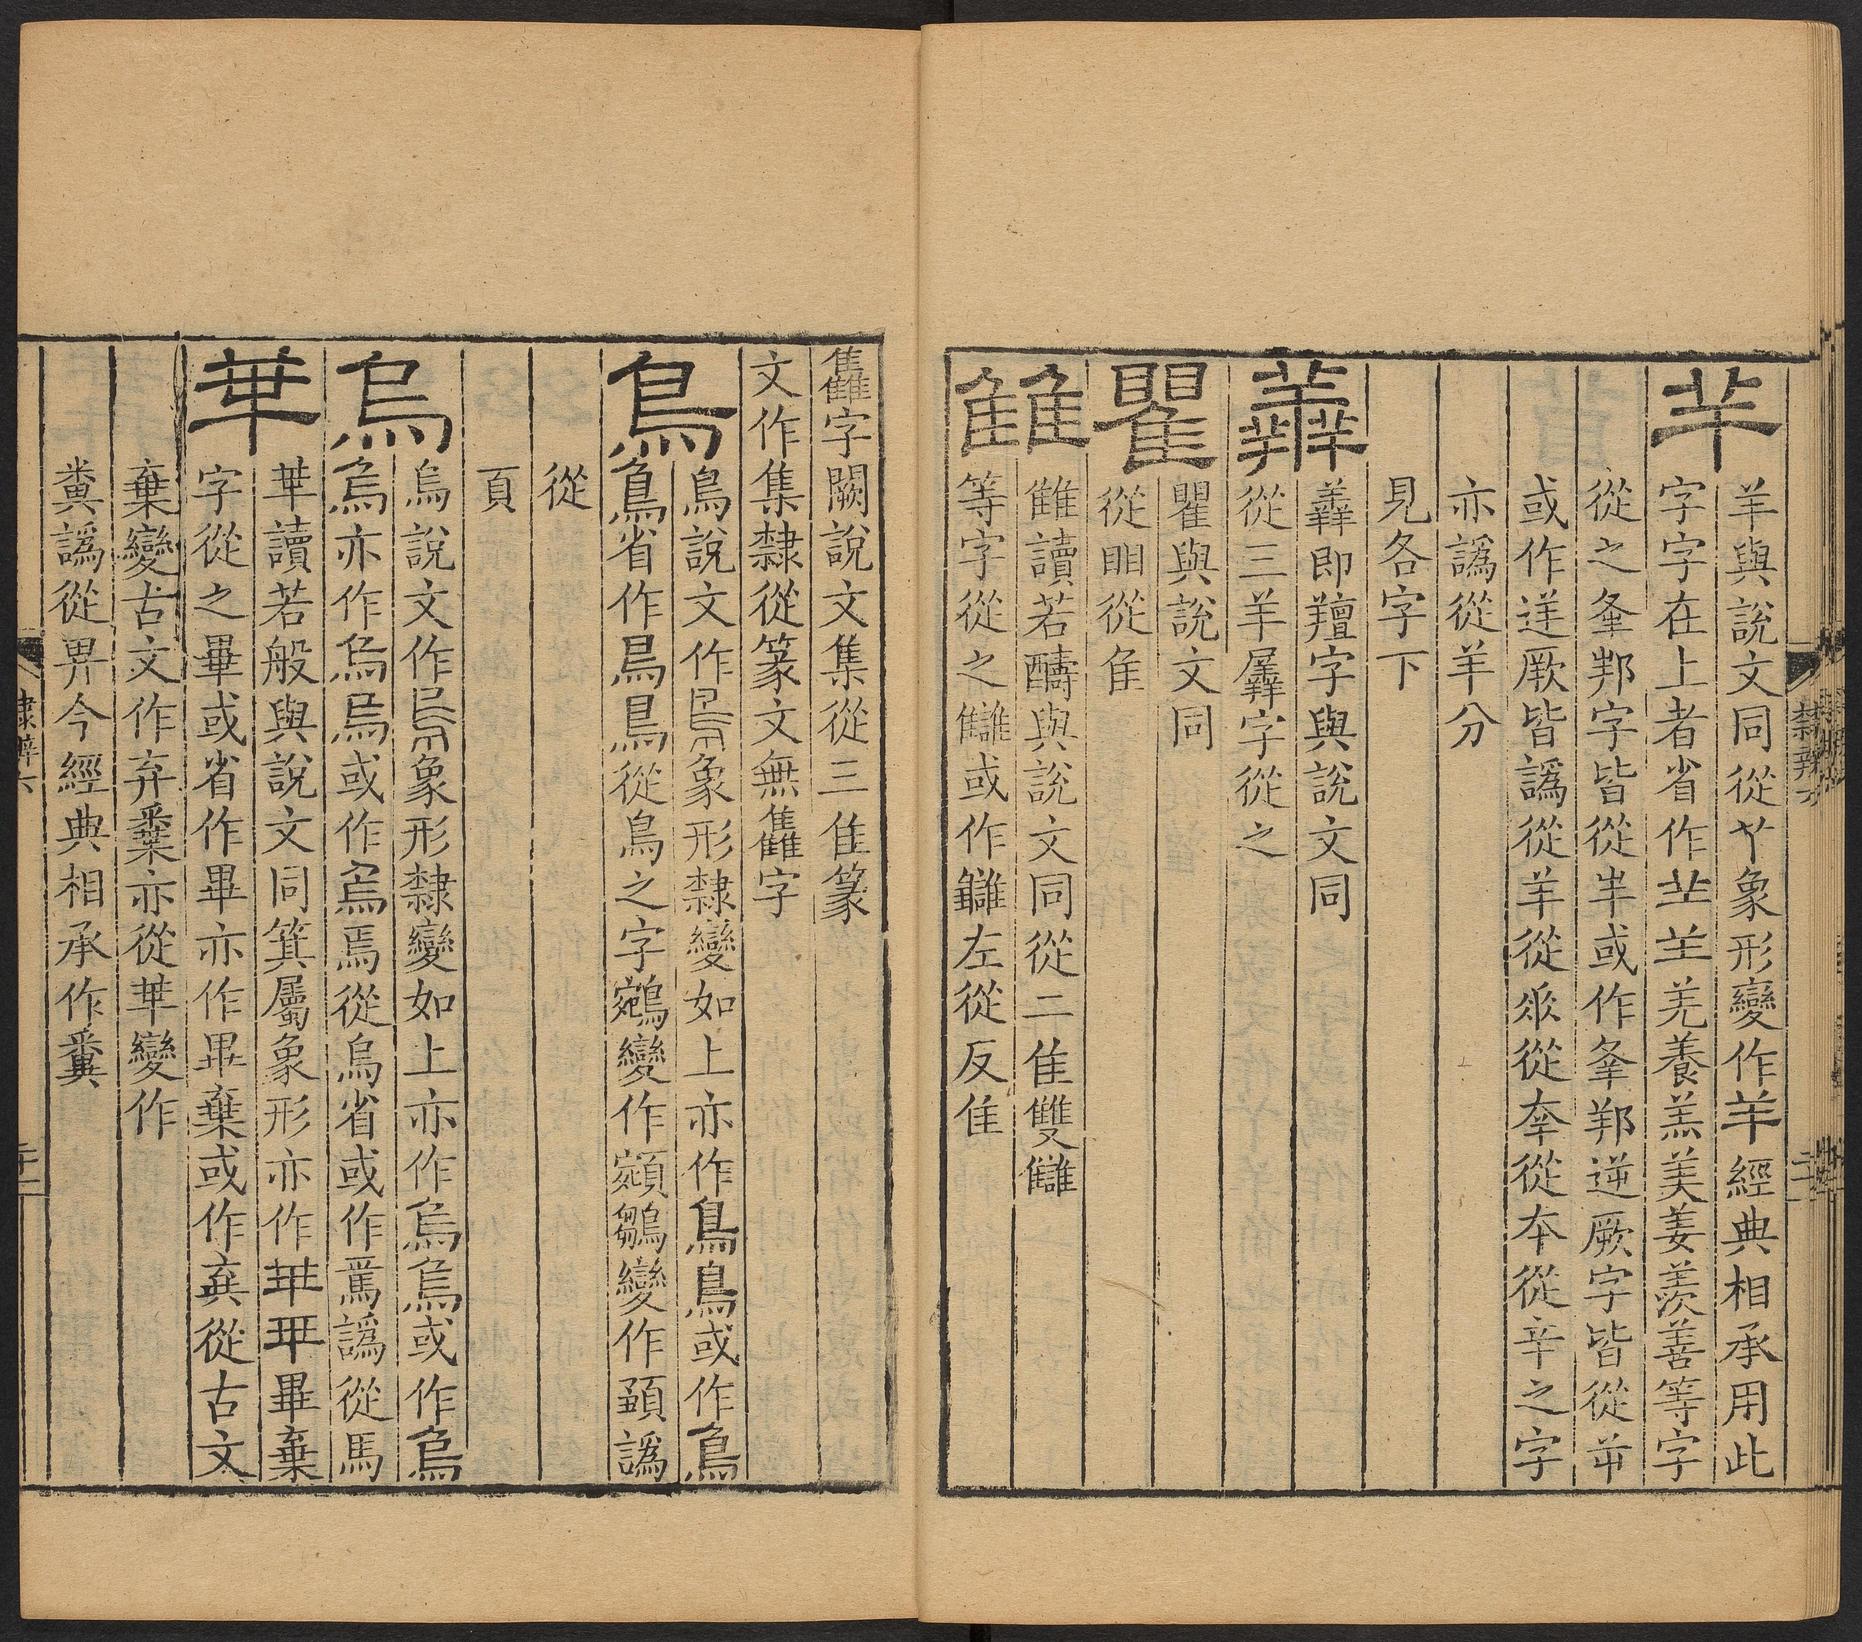 羊
羊與說文同從𦫳象形變作羊經典相承用此
字字在上者省作𦍌𦍌羌養羔美姜羨善等字
從之夆邦字皆從半或作夆邦逆厥字皆從屰
或作逆厥皆譌從羊從𠂢從夲從本從辛之字
亦譌從羊分
見各字下
羴
羴即羶字與說文同
從三羊羼字從之
瞿
瞿與說文同
從䀠從隹
雔
雔讀若醻與說文同從二隹雙讎
等字從之讎或作讎左從反隹
隸辨六
二十一
雥字闕說文集從三隹篆
文作集隸從篆文無雥字
鳥
鳥說文作鳥象形隸變如上亦作鳥鳥或作鳥
鳥省作鳥鳥從鳥之字鵷變作䫉鶵變作頿譌
從
頁
烏
烏說文作烏象形隸變如上亦作烏烏或作烏
烏亦作烏烏或作烏焉從烏省或作焉譌從馬
華
𠦒讀若般與說文同箕屬象形亦作𠦒𠦒畢棄
字從之畢或省作畢亦作畢棄或作棄從古文
棄變古文作弃糞亦從𠦒變作
糞譌從畀今經典相承作糞
隸辨六
二十二